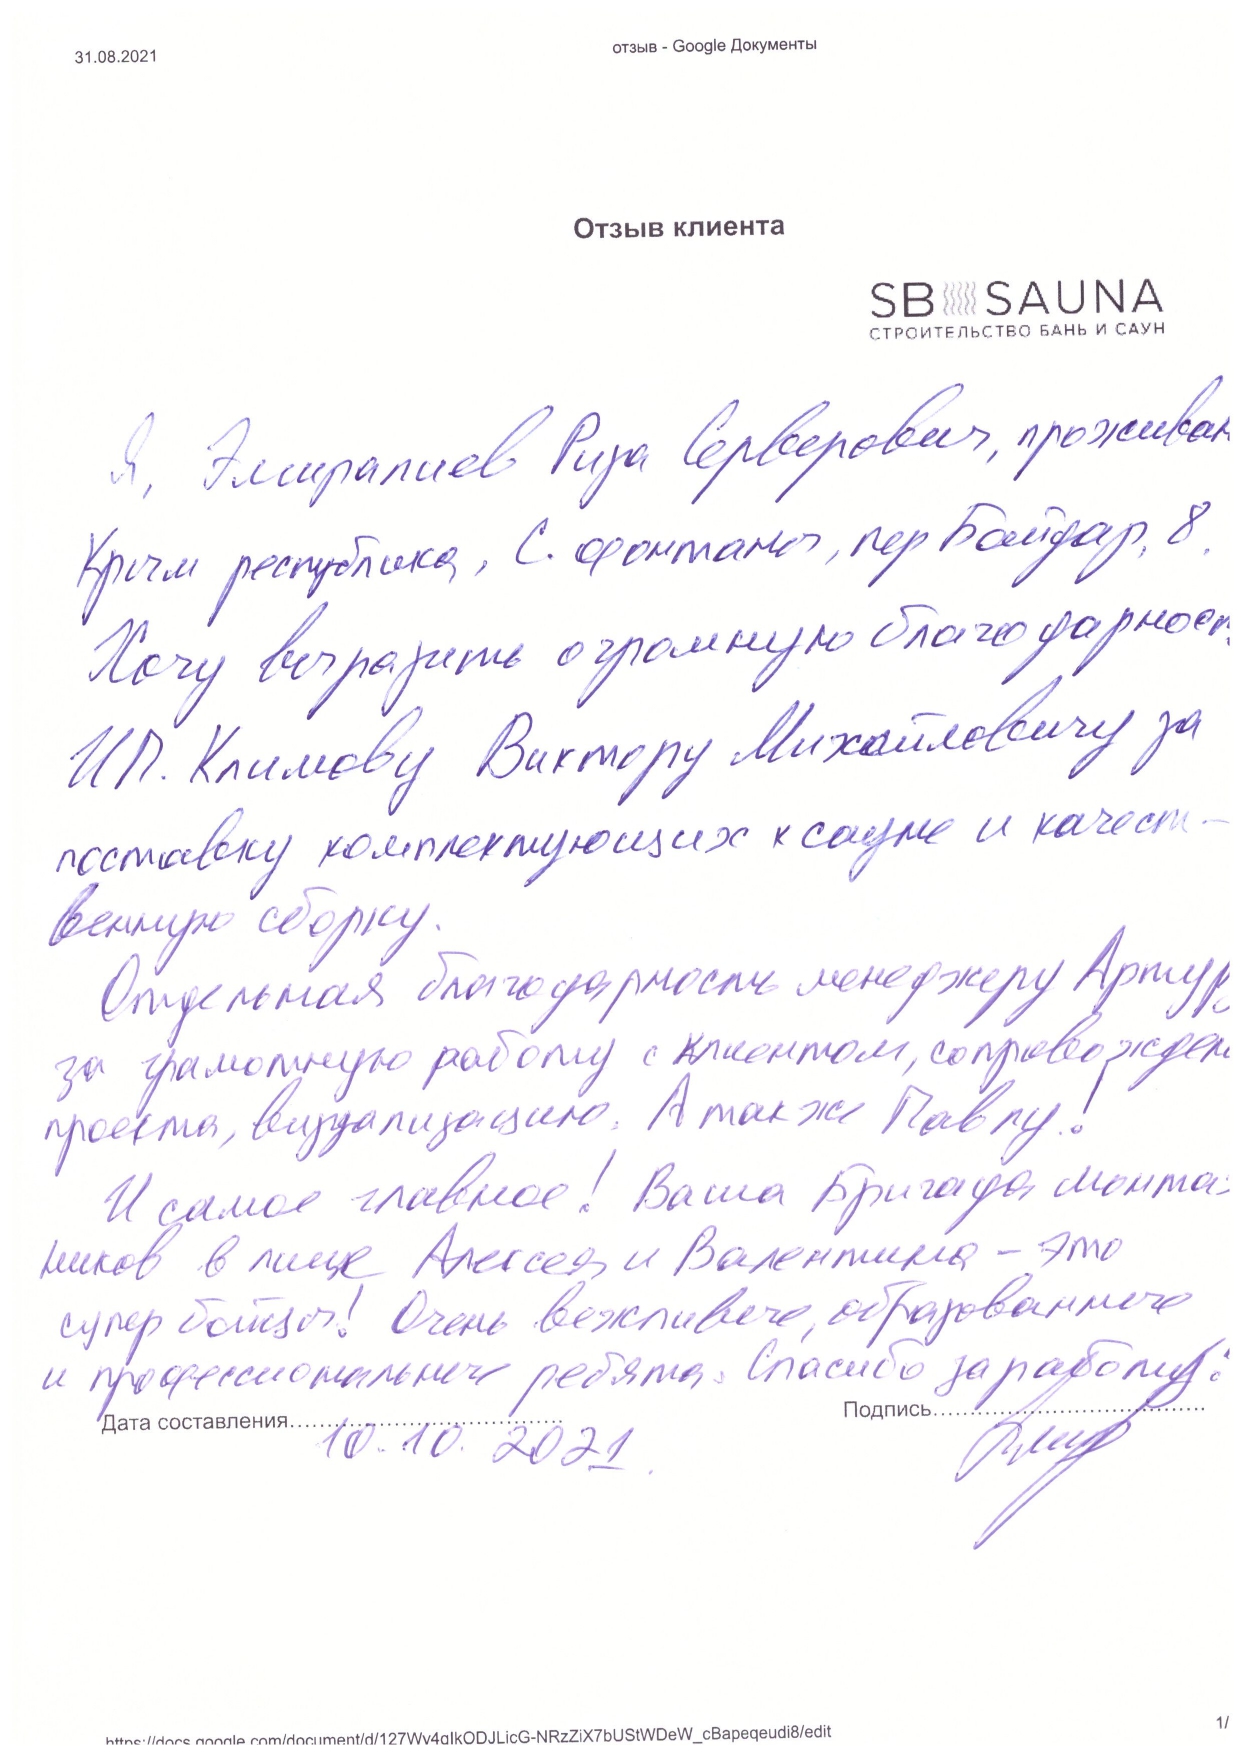 31.08.2021
отзыв - Google Документы
Отзыв клиента
SB SAUNA
СТРОИТЕЛЬСТВО БАНЬ И САУН
Я, Эмиралиев Риза Серверович, проживаю
Крым республика, с. Фонтаны, пер Байдар, 8.
Хочу выразить огромную благодарност
ИП. Климову Виктору Михайловичу за
поставку комплектующих к сауне и качест-
венную сборку.
Отдельная благодарность менеджеру Артуру
за грамотную работу с клиентом, сопровожден
проекта, визуализацию. А также Павлу!
И самое главное! Ваша Бригада монтаж
ников в лице Алексея и Валентина - это
супер бойцы! Очень вежливые, образованные
и профессиональные ребята. Спасибо за работу!
Дата составления.................................
10.10.2021.
Подпись....................................
https://docs.google.com/document/d/127Wv4qIkODJLicG-NRzZiX7bUStWDeW_cBapeqeudi8/edit
1/